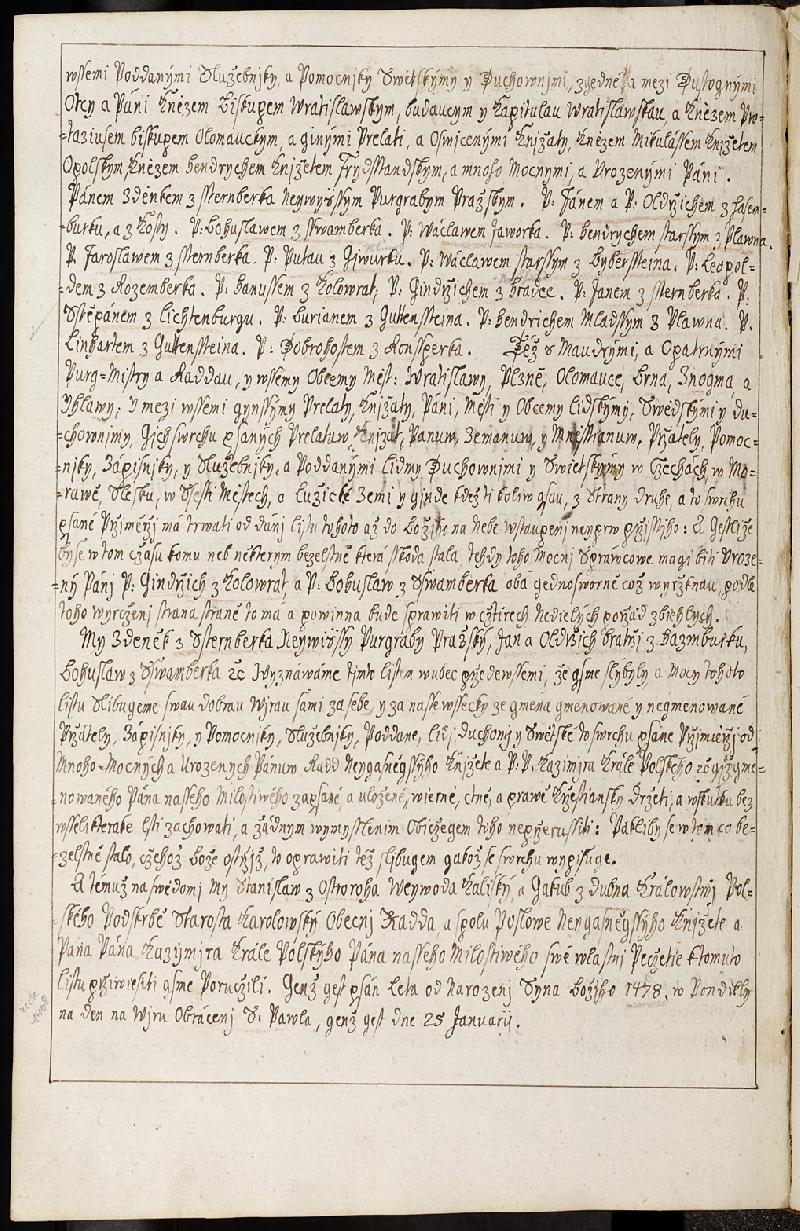 wssemi Poddanými Služebnjky, a Pomocnjky Swětskými y Duchownjmi, zgedné a mezi Dustognými
Otcy a Páni Knězem Biskupem Wratislawským, budaucym y Kapitulau Wratislawskau, a Knězem Pro-
-taziusem biskupem Olomauckým, a ginými Prelati, a Oswjcenými Knjžaty, Knězem Mikulássem Knjžetem
Opolským, Knězem hendrychem Knjžetem Frydsstandským, a mnoho Mocnými, a Urozenými Páni.
Pánem Zdeňkem z Ssternberka Neywyšssým Purgrabým Pražským. P. Jánem a P. Oldržichem z Hasem-
-burku, a z Kosty. P. Bohuslawem z Sswamberka. P. Wáclawem Jaworka. P. hendrychem starssým z Plawna.
P. Jaroslawem z Ssternberka. P. Putau z Gjwurku. P. Wáclawem starssým z Byberssteina. P. Leopol-
-dem z Rozemberka. P. hanussem z Kolowrat, P. Gindržichem z hradec. P. Janem z Ssternberka. P.
Sstěpánem z Lichtenburgu. P. Burianem z Guttenssteina. P. hendrichem Mladssým z Plawna. P.
Linhartem z Guttenssteina. P. Dobrohostem z Ronssperka. Též s Maudrými, a Opatrnými
Purg-Mistry a Raddau, y wssemy Obcemy Měst: Wratislawy, Plzně, Olomauce, Brna, Znogma a
Yhlawy; Y mezi wssemi gynssýmy Prelaty, Knjžaty, Páni, Městy y Obcemy lidskými, Swědskými y du-
-chownjmy, Gich swrchu psaných Prelatuw, Knjžat, Panuw, Zemanuw, y Mnesstianuw, Pržately, Pomoc-
-njky, Zápisnjky, y Služebnjky, a Poddanými lidmy Duchownjmi y Swětskými w Czechách, w Mo-
-rawě, Slesku, w Ssesti Městech, a Lužické Zemi y ginde kdež ti koliw gsau, z Strany druhé, a to swrchu
psané Pržjměržj má trwati od dánj listu tohoto až do Božjho na Nebe wstaupenj neyprw pržisstjho: A Gestliže
býse w tom cžasu komu neb některým bezelstně která sskoda stala, tehdy toho Mocnj Sprawcowe magj býti Uroze-
-ný Pánj P. Gindržich z Kolowrat, a P. Bohuslaw z Sswamberka oba gednosworně což wyržknau, podlé
toho wyrčenj strana straně to má a powinna bude sprawiti w cžtirech Nedielých poržád zbiehlých.
My Zdeněk z Ssternberka Neywyšssý Purgrabý Pražský, Jan a Oldržich bratrj z Hazmburku,
Bohuslaw z Sswamberka &c. Wyznawáme tjmto listem wubec przedewssemi, že gsme slybyly, a Mocy tohoto
listu Slibugeme swau dobrau Wjrau sami za sebe, y za nasse wssecky ze gmena gmenowané y negmenowané
Pržately, Zápisnjky, y Pomocnjky, Služebnjky, Poddané, lidj duchonj y Swětské to swrchu psané Pržjměržj od
Mnoho-Mocných a Urozených Pánuw Radd Neygasněgssýho Knjžete a P. P. Kazimjra Krále Polského &c. gižgme-
-nowaného Pána nasseho Milostiwého zapsané a uložené, wierně, ctně, a prawě Kržestiansky držeti, a wskutku bez
wsselikterake lsti zachowati, a žádnym wymysslenim Obiczegem toho nepržerussiti: Pakliby se w tom co be-
-zelstně stalo, cžehož Bože ostržjž, to oprawiti též slibugem gakož se swrchu wypisuge.
A témuž na swědomj My Stanislaw z Ostroroha Weywoda Kaliský, a Jakub z Dubna Králowstwj Pol-
-ského Podskrbě Starosta Karolowský Obecnj Radda, a spolu Poslowe Neygasněgssýho Knjžete a
Pána Pána Kazymjra Krále Polskýho Pána nasseho Milostiwého swé wlastnj Pečetie k tomuto
listu prziwiesyti gsme Poručili. Genž gest psán Leta od Narozenj Syna Božjho 1478, w Pondiely
na den na Wjru Obracenj S. Pawla, genž gest dne 25 Januarij.